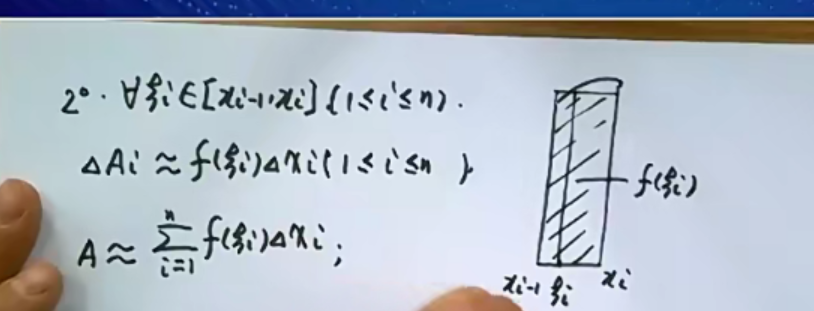 2°. ∀ξi∈[xi-1,xi](1≤i≤n).
ΔAi≈f(ξi)Δxi(1≤i≤n)
A≈∑ⁿi=1 f(ξi)Δxi;
f(ξi)
xi-1 ξi xi